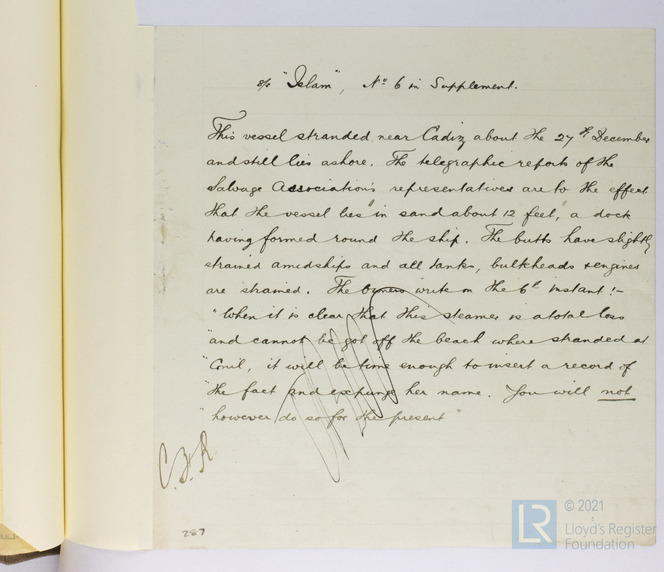 s/s "Islam", No 6 in Supplement.
This vessel stranded near Cadiz about the 27th December
and still lies ashore. The telegraphic reports of the
Salvage Association's representatives are to the effect
that the vessel lies "in sand about 12 feet", a dock
having formed round the ship. The butts have slightly
strained amidships and all tanks, bulkheads & engines
are strained. The Owners write on the 6th instant:-
"When it is clear that this steamer is a total loss
"and cannot be got off the beach where stranded at
"Conil, it will be time enough to insert a record of
"the fact and expunge her name. You will not
"however do so for the present"
287
© 2021
LR
Lloyd's Register
Foundation